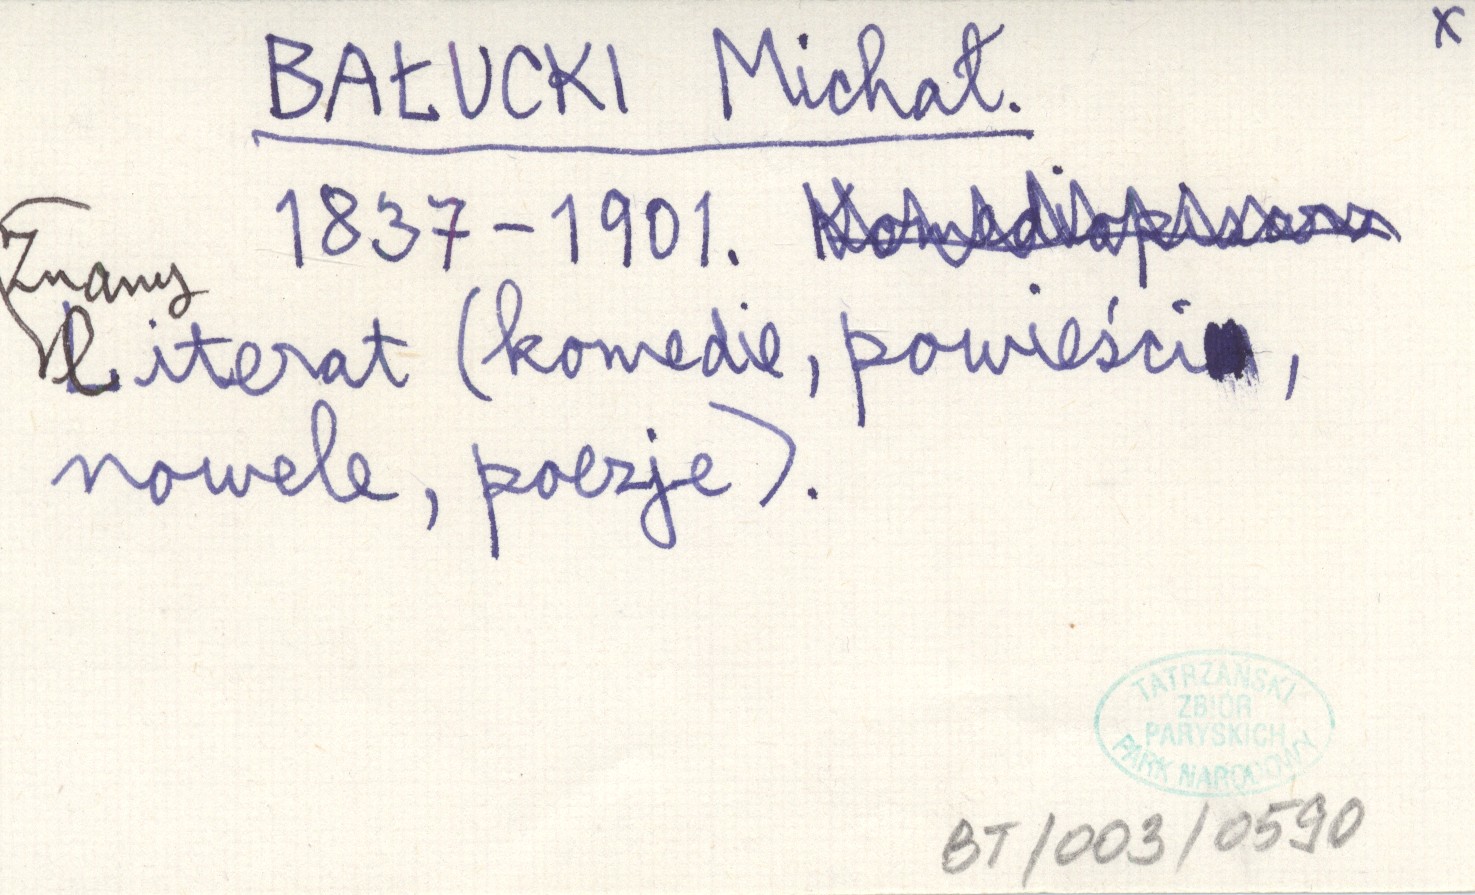 x
BAŁUCKI Michał.
1837-1901. Komediopisarz
Znany
literat (komedie, powieści,
nowele, poezje).
TATRZAŃSKI
ZBIÓR
PARYSKICH
PARK NARODOWY
BT/003/0590